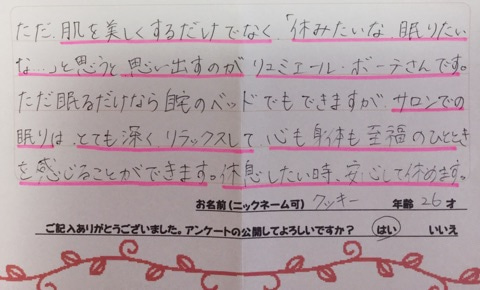 ただ、肌を美しくするだけでなく、「休みたいな、眠りたい
な…」と思うと思い出すのがリュミエール・ボーテさんです。
ただ眠るだけなら自宅のベッドでもできますが、サロンでの
眠りは、とても深くリラックスして、心も身体も至福のひととき
を感じることができます。休息したい時、安心して休めます。
お名前(ニックネーム可) クッキー 年齢 26 才
ご記入ありがとうございました。アンケートの公開してよろしいですか? はい いいえ